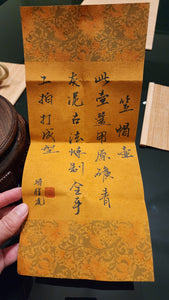 笠帽壺
此壺選用原礦青
灰泥古法特製全手
工拍打成型